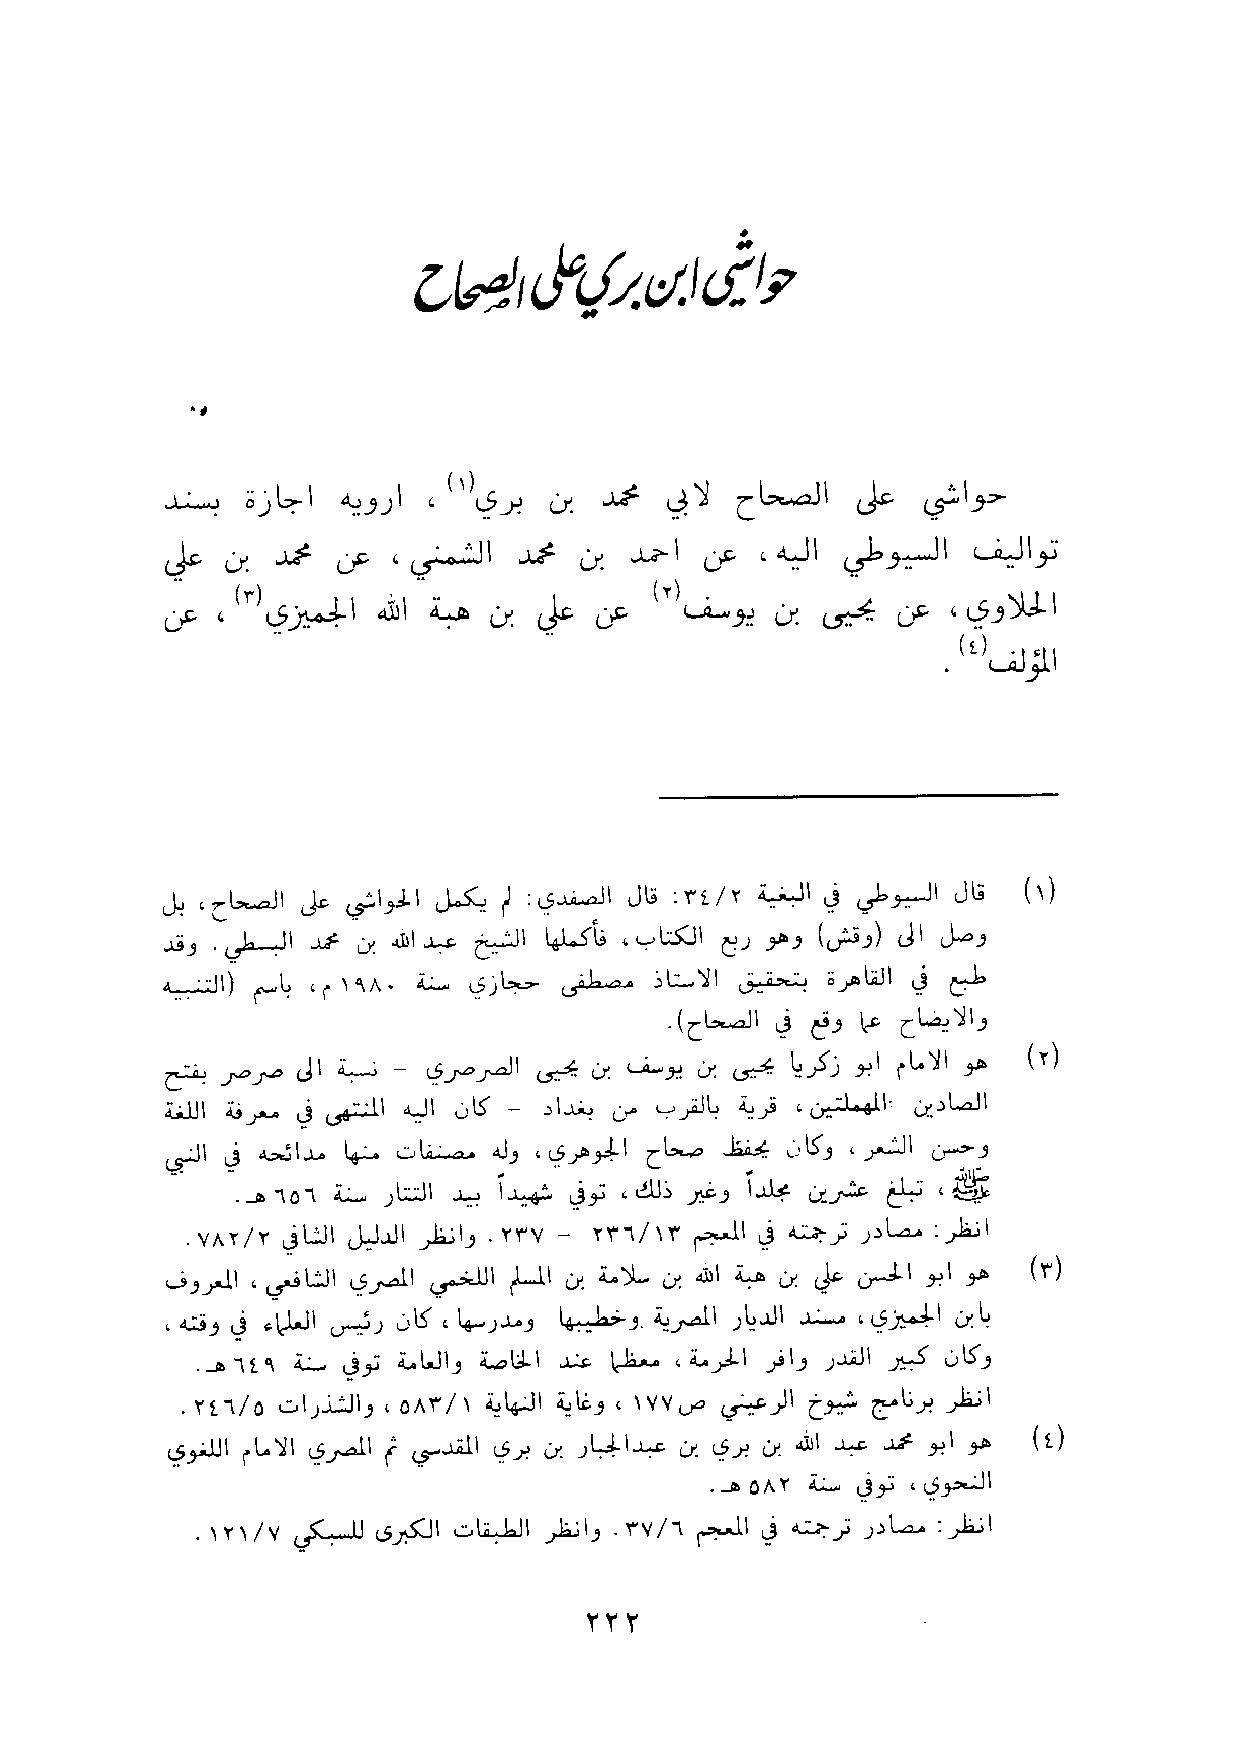 حواشي ابن بري على الصحاح
حواشي على الصحاح لابي محمد بن بري(١)، ارويه اجازة بسند
تواليف السيوطي اليه، عن احمد بن محمد الشمني، عن محمد بن علي
الحلاوي، عن يحيى بن يوسف(٢) عن علي بن هبة الله الجميزي(٣)، عن
المؤلف(٤).
(١) قال السيوطي في البغية ٢/٣٤: قال الصفدي: لم يكمل الحواشي على الصحاح، بل
وصل الى (وقش) وهو ربع الكتاب، فأكملها الشيخ عبد الله بن محمد البسطي. وقد
طبع في القاهرة بتحقيق الاستاذ مصطفى حجازي سنة ١٩٨٠ م، باسم (التنبيه
والايضاح عما وقع في الصحاح).
(٢) هو الامام ابو زكريا يحيى بن يوسف بن يحيى الصرصري - نسبة الى صرصر بفتح
الصادين المهملتين، قرية بالقرب من بغداد - كان اليه المنتهى في معرفة اللغة
وحسن الشعر، وكان يحفظ صحاح الجوهري، وله مصنفات منها مدائحه في النبي
ﷺ، تبلغ عشرين مجلداً وغير ذلك، توفي شهيداً بيد التتار سنة ٦٥٦ هـ.
انظر: مصادر ترجمته في المعجم ١٣/٢٣٦ - ٢٣٧. وانظر الدليل الشافي ٢/٧٨٢.
(٣) هو ابو الحسن علي بن هبة الله بن سلامة بن المسلم اللخمي المصري الشافعي، المعروف
بابن الجميزي، مسند الديار المصرية وخطيبها ومدرسها، كان رئيس العلماء في وقته،
وكان كبير القدر وافر الحرمة، معظما عند الخاصة والعامة توفي سنة ٦٤٩ هـ.
انظر برنامج شيوخ الرعيني ص١٧٧، وغاية النهاية ١/٥٨٣، والشذرات ٥/٢٤٦.
(٤) هو ابو محمد عبد الله بن بري بن عبدالجبار بن بري المقدسي ثم المصري الامام اللغوي
النحوي، توفي سنة ٥٨٢ هـ.
انظر: مصادر ترجمته في المعجم ٦/٣٧. وانظر الطبقات الكبرى للسبكي ٧/١٢١.
٢٢٢